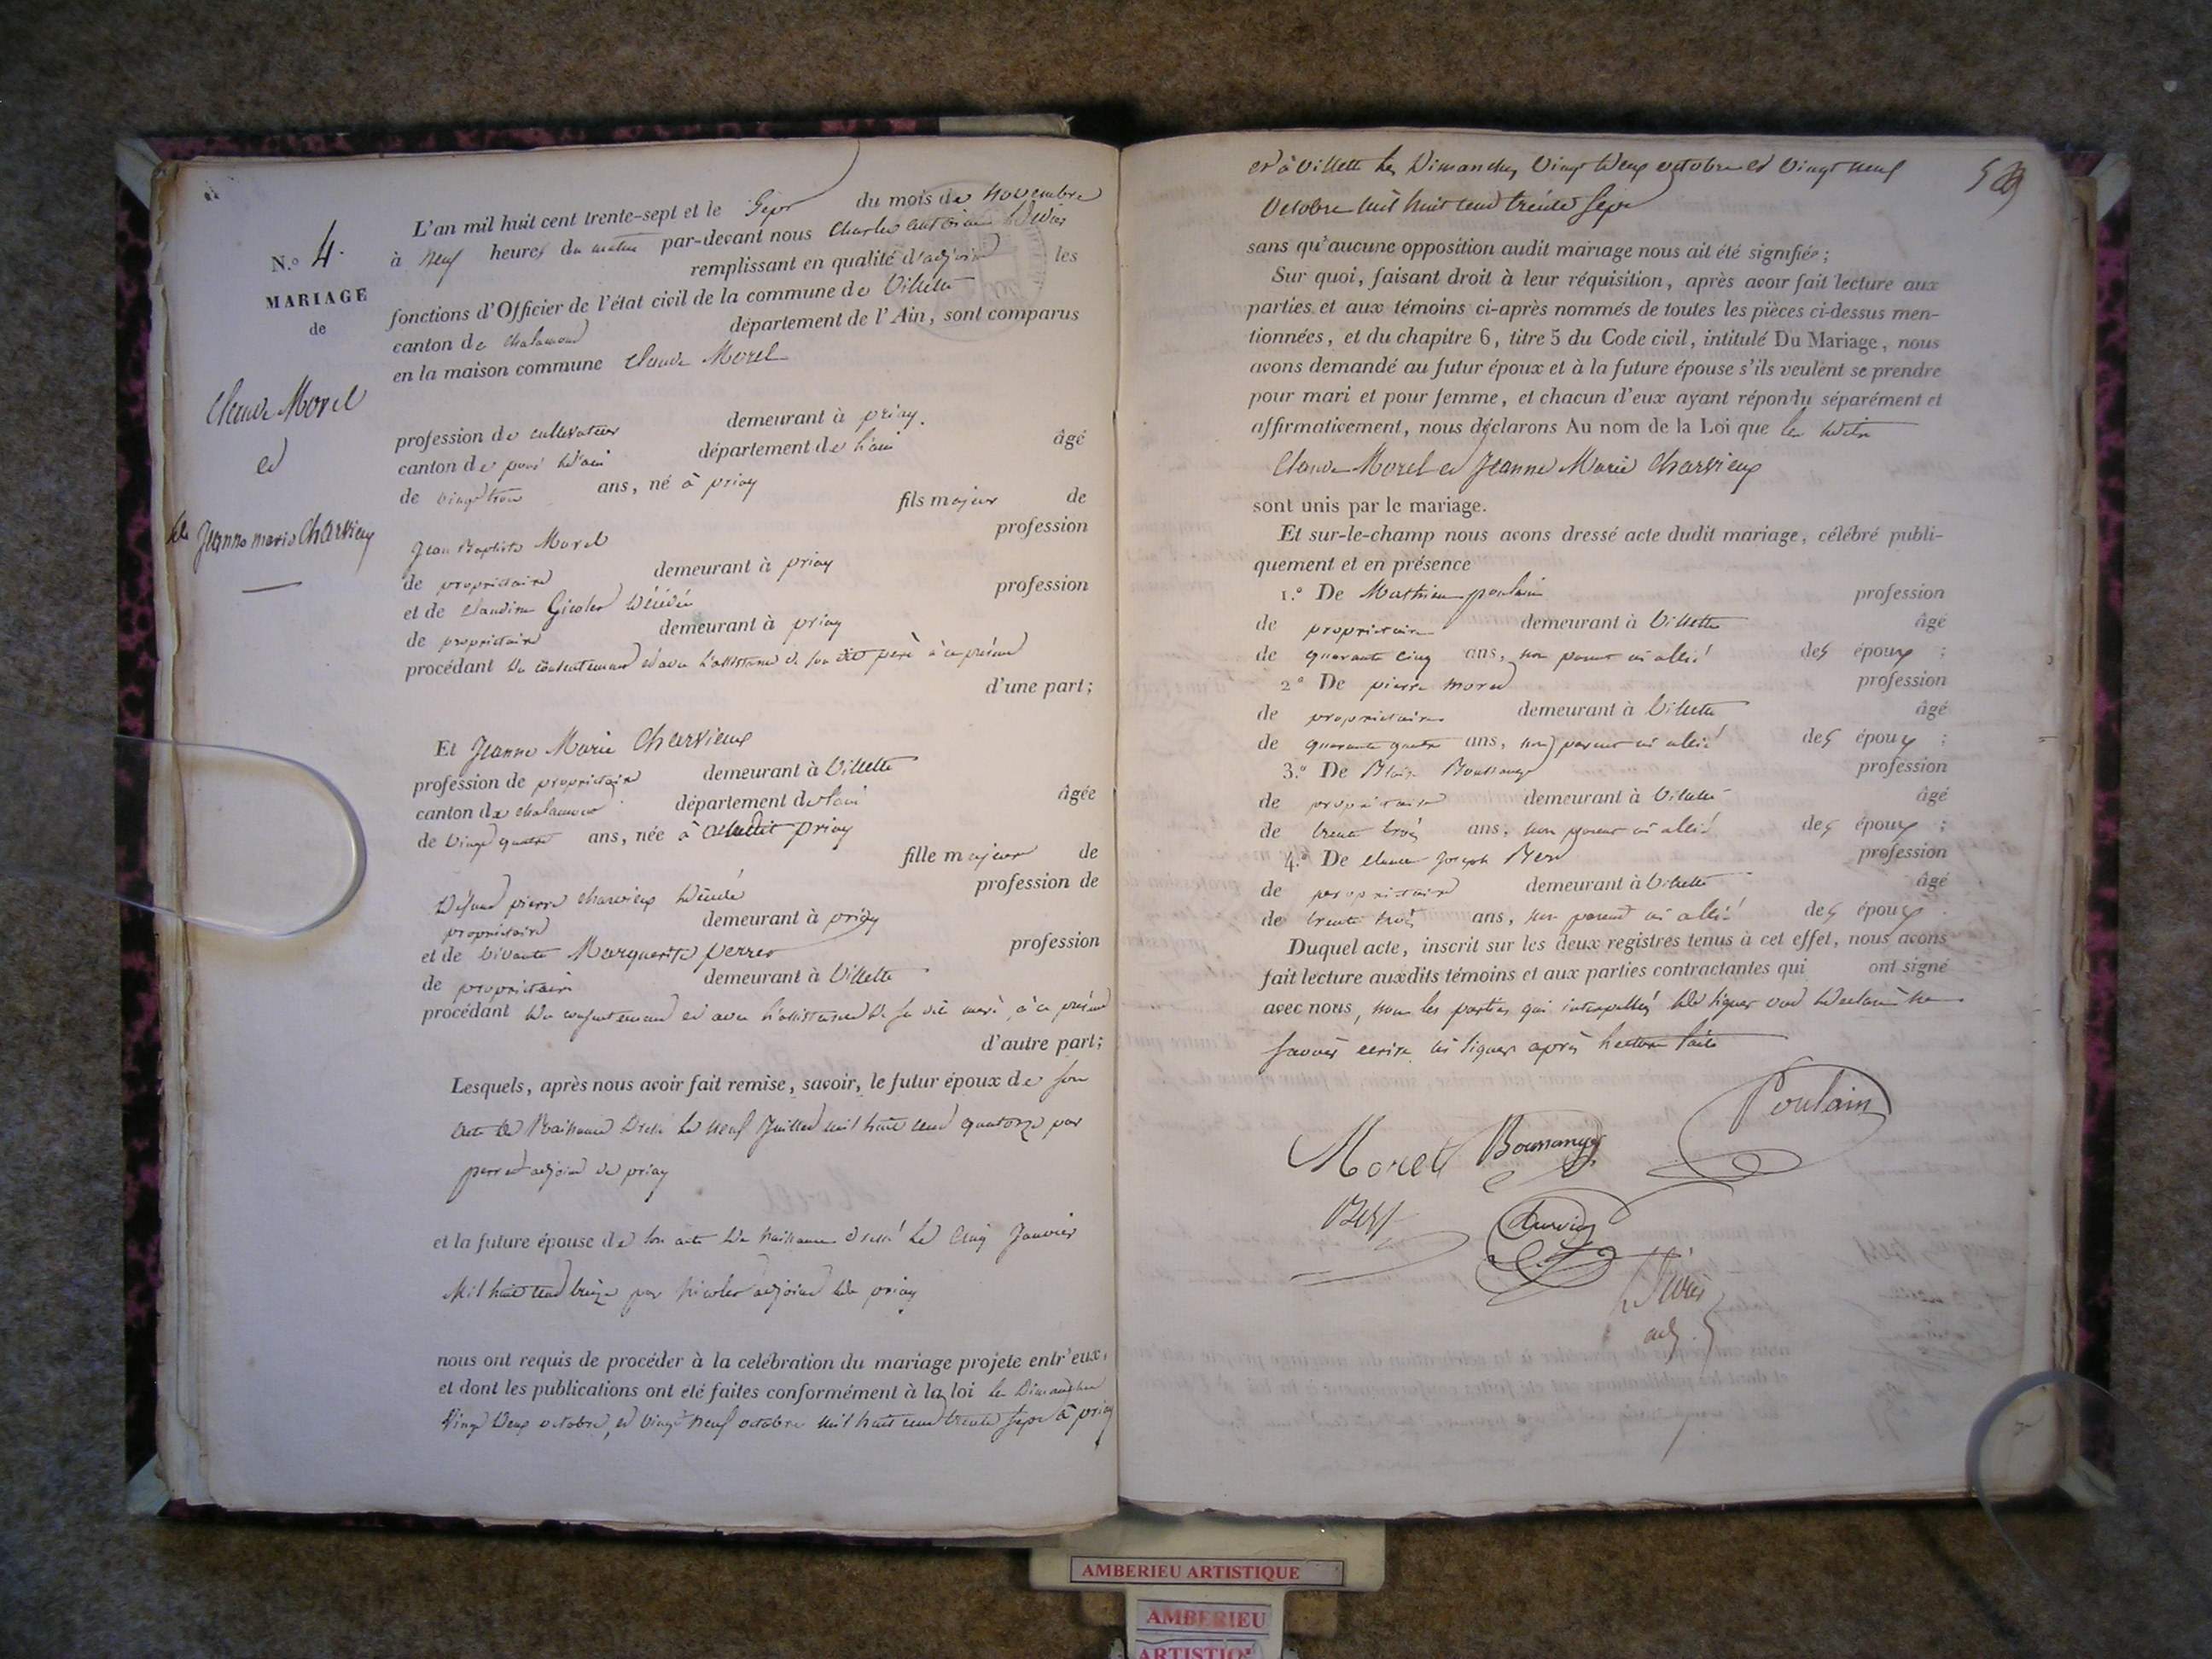 N.º 4.
MARIAGE
de
Claude Morel
et
de Jeanne marie Charvieux
L'an mil huit cent trente-sept et le Sept du mois de novembre
à neuf heures du matin par-devant nous Charles antoine
remplissant en qualité d'adjoint les
fonctions d'Officier de l'état civil de la commune de Villette
canton de chalamont département de l'Ain, sont comparus
en la maison commune Claude Morel
profession de cultivateur demeurant à priay.
canton de pont d'ain département de l'ain âgé
de vingt trois ans, né à priay
fils majeur de
Jean Baptiste Morel profession
de propriétaire demeurant à priay
et de Claudine décédée profession
de propriétaire demeurant à priay
procédant du consentement et avec l'assistance de son dit père à ce présent
d'une part;
Et Jeanne Marie Charvieux
profession de propriétaire demeurant à Villette
canton de chalamont département de l'ain âgée
de vingt quatre ans, née à priay
fille majeure de
Défunt pierre charvieux décédé profession de
propriétaire demeurant à priay
et de vivante Marguerite perret profession
de propriétaire demeurant à Villette
procédant du consentement et avec l'assistance de sa dite mère à ce présent
d'autre part;
Lesquels, après nous avoir fait remise, savoir, le futur époux de son
acte de Naissance Dressé le neuf Juillet mil huit cent quatorze par
perret adjoint de priay
et la future épouse de son acte de naissance dressé le Cinq Janvier
Mil huit cent treize par adjoint de priay
nous ont requis de procéder à la celébration du mariage projeté entr'eux,
et dont les publications ont été faites conformément à la loi les Dimanches
Vingt Deux octobre, et vingt neuf octobre mil huit cent trente sept à priay
et à Villette les Dimanches Vingt Deux octobre et Vingt neuf
Octobre mil huit cent trente sept
sans qu'aucune opposition audit mariage nous ait été signifiée;
Sur quoi, faisant droit à leur réquisition, après avoir fait lecture aux
parties et aux témoins ci-après nommés de toutes les pièces ci-dessus men-
tionnées, et du chapitre 6, titre 5 du Code civil, intitulé Du Mariage, nous
avons demandé au futur époux et à la future épouse s'ils veulent se prendre
pour mari et pour femme, et chacun d'eux ayant répondu séparément et
affirmativement, nous déclarons Au nom de la Loi que
Claude Morel et Jeanne Marie Charvieux
sont unis par le mariage.
Et sur-le-champ nous avons dressé acte dudit mariage, célébré publi-
quement et en présence
1.º De Mathieu poulain profession
de propriétaire demeurant à Villette âgé
de quarante cinq ans, non parent ni allié des époux ;
2º De pierre morel profession
de propriétaire demeurant à Villette âgé
de quarante quatre ans, non parent ni allié des époux ;
3.º De Blaise Boussange profession
de propriétaire demeurant à Villette âgé
de trente trois ans, non parent ni allié des époux ;
4.º De Claude Joseph profession
de propriétaire demeurant à Villette âgé
de trente trois ans, non parent ni allié des époux
Duquel acte, inscrit sur les deux registres tenus à cet effet, nous avons
fait lecture auxdits témoins et aux parties contractantes qui ont signé
avec nous, non les parties qui interpellés de signer ont déclaré ne
savoir ecrire ni signer après lecture faite
Poulain
Morel Boussange
adj.
AMBERIEU ARTISTIQUE
AMBERIEU
ARTISTIQUE